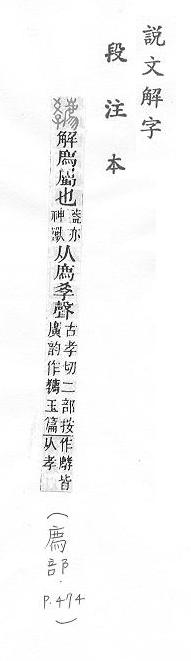 說文解字
段注本
解廌屬也蓋亦神獸从廌孝聲古孝切二部按廣韵作玉篇作皆从孝
(廌部.P.474)